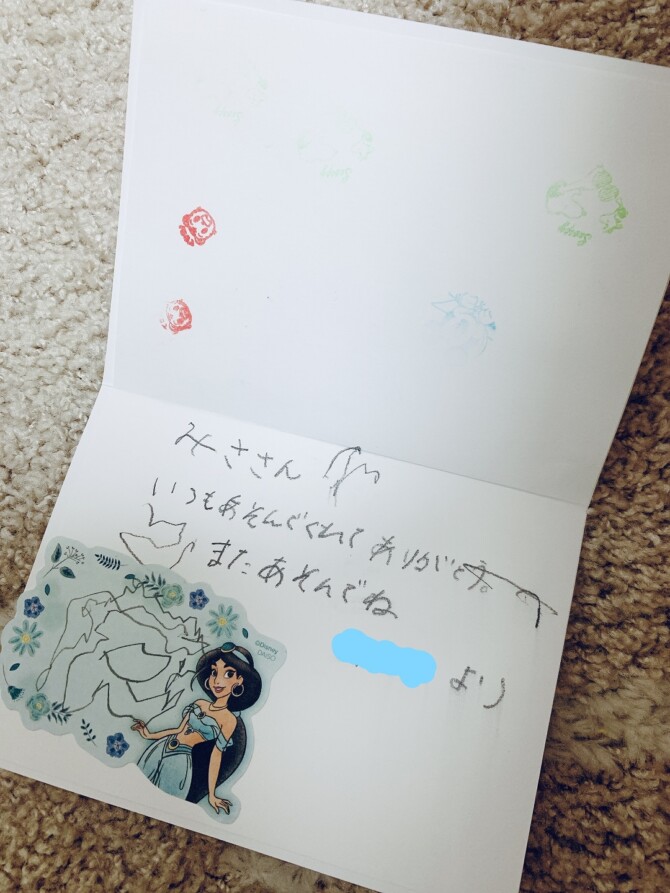 みささん
いつもあそんでくれて ありがとう。
またあそんでね
より
©Disney
DAISO